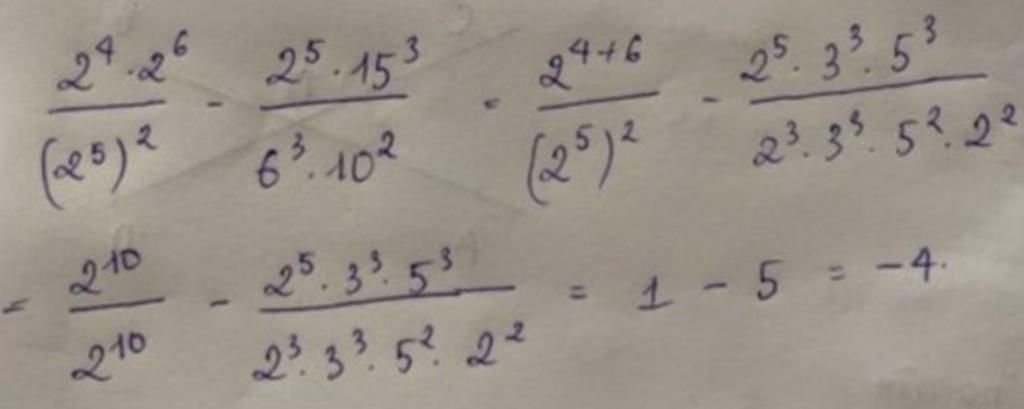 \frac{2^4 \cdot 2^6}{(2^5)^2} - \frac{2^5 \cdot 15^3}{6^3 \cdot 10^2} = \frac{2^{4+6}}{(2^5)^2} - \frac{2^5 \cdot 3^3 \cdot 5^3}{2^3 \cdot 3^3 \cdot 5^2 \cdot 2^2}
= \frac{2^{10}}{2^{10}} - \frac{2^5 \cdot 3^3 \cdot 5^3}{2^3 \cdot 3^3 \cdot 5^2 \cdot 2^2} = 1 - 5 = -4.